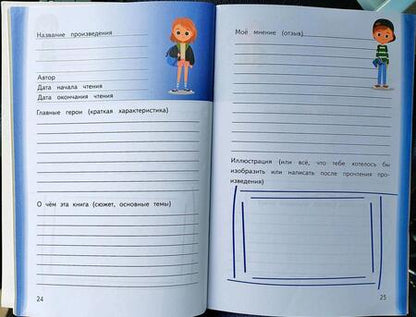 Название произведения
Автор
Дата начала чтения
Дата окончания чтения
Главные герои (краткая характеристика)
О чём эта книга (сюжет, основные темы)
24
Моё мнение (отзыв)
Иллюстрация (или всё, что тебе хотелось бы
изобразить или написать после прочтения про-
изведения)
25